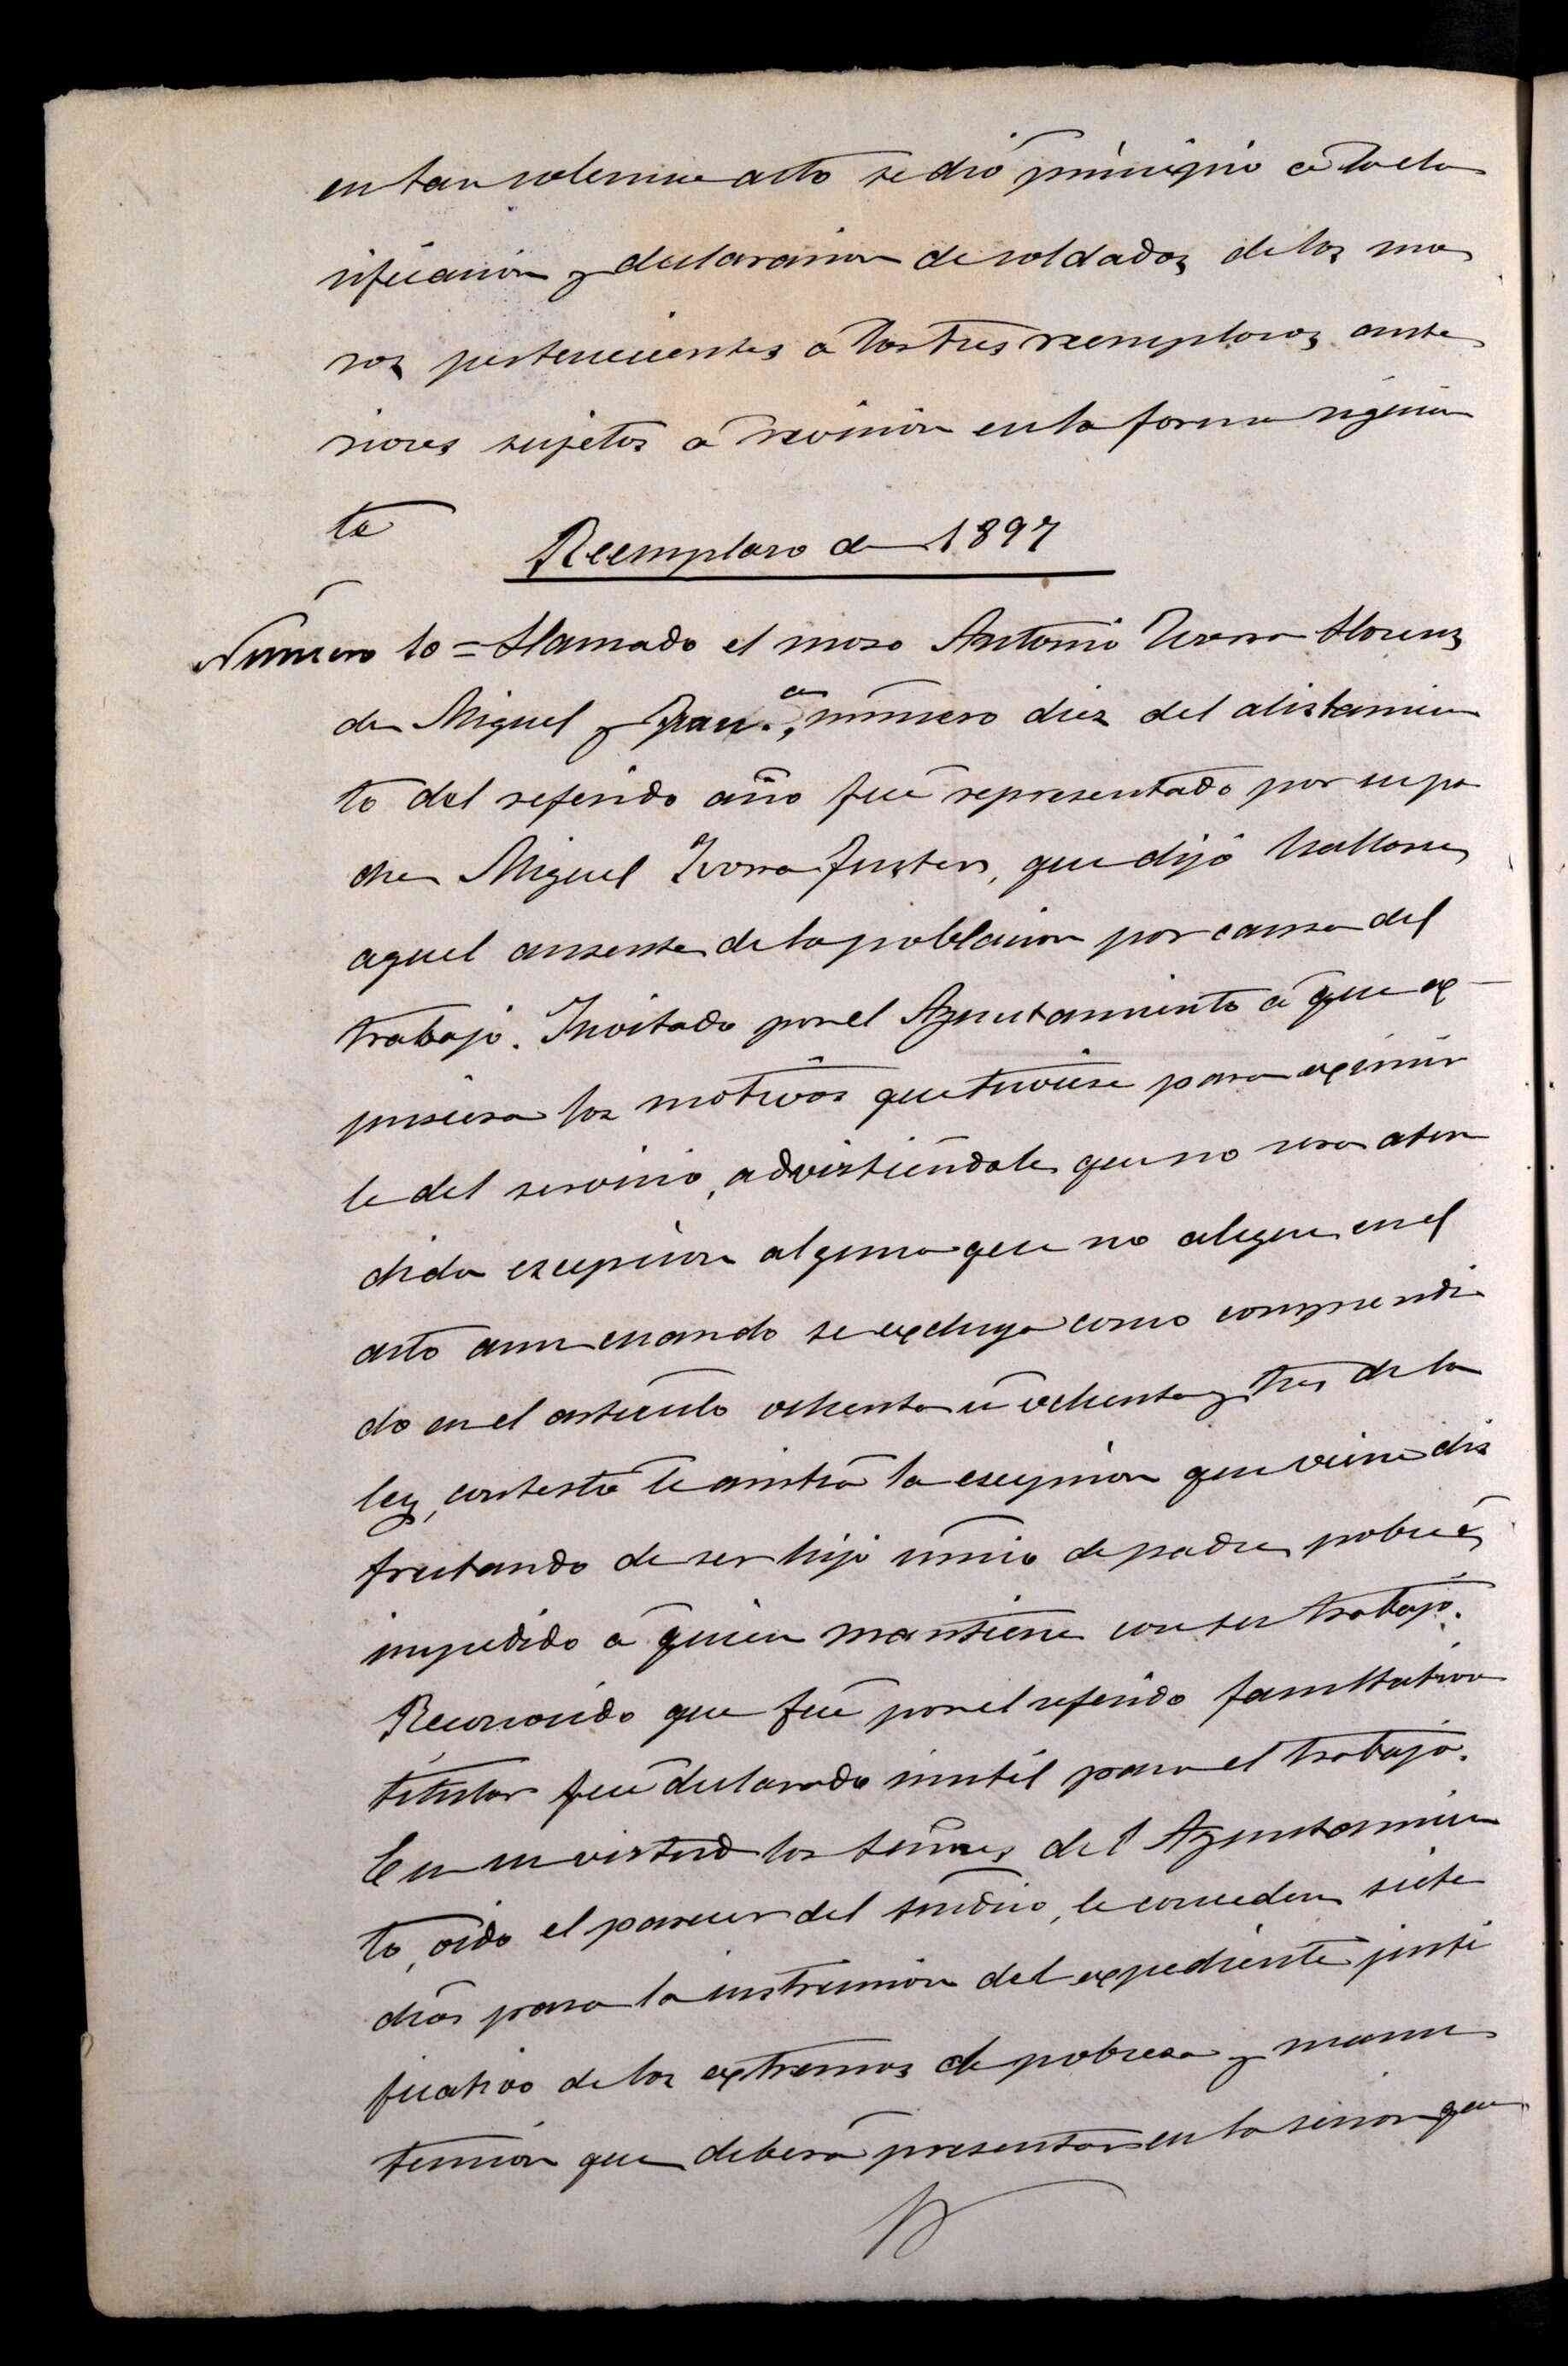 en tan solemne acto se dió principio á la cla
sificación y declaracion de soldados de los mo
zos pertenecientes á los tres reemplazos ante
riores sujetos á revision en la forma siguien
te
Reemplazo de 1897
Número 10 = Llamado el mozo Antonio Ivorra Llorens
de Miguel y Fran.ca, número diez del alistamien
to del referido año fué representado por su pa
dre Miguel Ivorra Fuster, que dijo hallarse
aquel ausente de la poblacion por causa del
trabajo. Invitado por el Ayuntamiento á que ex-
pusiera los motivos que tuviese para eximir
le del servicio, advirtiéndole que no sera aten
dida escepcion alguna que no alegue en el
acto aun cuando se excluya como comprendi
do en el articulo ochenta u ochenta y tres de la
ley, contestó le asistia la escepcion que viene dis
frutando de ser hijo unico de padre pobre é
impedido á quien mantiene con su trabajo.
Reconocido que fué por el referido facultativo
titular fué declarado inutil para el trabajo.
En su virtud los señores del Ayuntamien
to, oido el parecer del sindico, le conceden siete
dias para la instruccion del expediente justi
ficativo de los extremos de pobreza y manu
tencion que deberá presentar en la sesion que